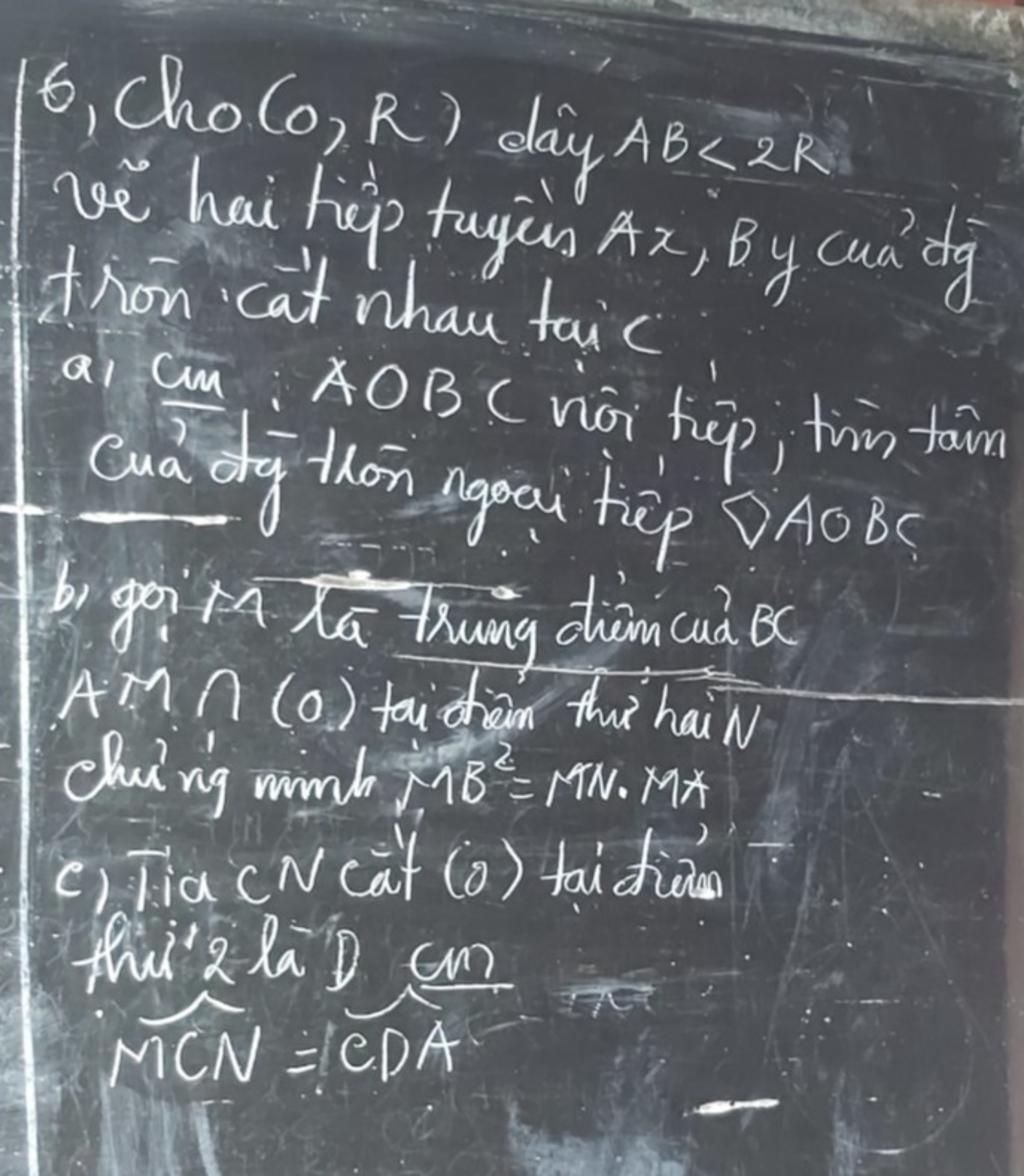 6, Cho (O, R) dây AB < 2R
vẽ hai tiếp tuyến Ax, By của đg
tròn cắt nhau tại C
a, cm : AOBC nội tiếp, tìm tâm
của đg tròn ngoại tiếp ◊AOBC
b, gọi M là trung điểm của BC
AM ∩ (O) tại điểm thứ hai N
chứng minh MB² = MN. MA
c, Tia CN cắt (O) tại điểm
thứ 2 là D cm
\widehat{MCN} = \widehat{CDA}